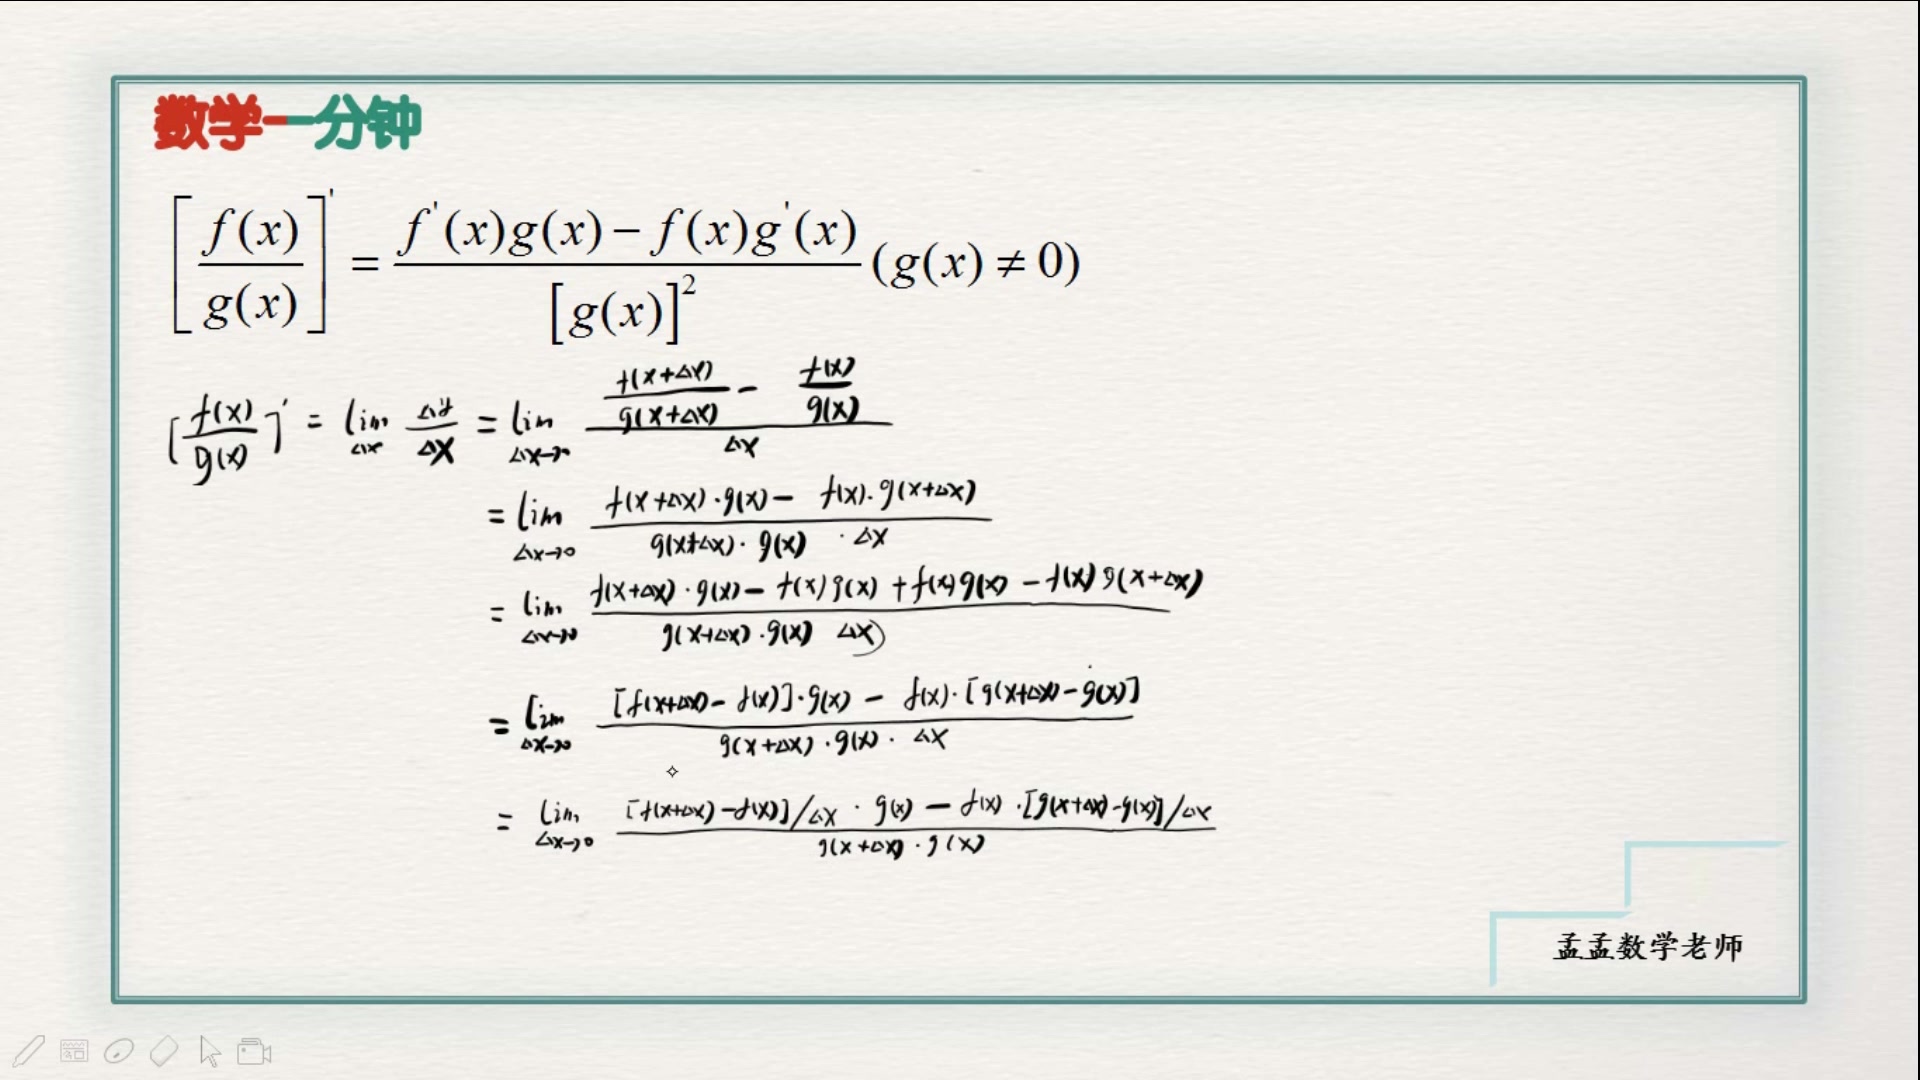 数学一分钟
[f(x)/g(x)]' = (f'(x)g(x) − f(x)g'(x))/[g(x)]² (g(x) ≠ 0)
[f(x)/g(x)]' = lim Δx Δy/ΔX = lim Δx→0 (f(x+Δx)/g(x+Δx) − f(x)/g(x))/Δx
= lim Δx→0 (f(x+Δx)·g(x) − f(x)·g(x+Δx))/(g(x+Δx)·g(x)·Δx)
= lim Δx→0 (f(x+Δx)·g(x) − f(x)g(x) + f(x)g(x) − f(x)g(x+Δx))/(g(x+Δx)·g(x) Δx)
= lim Δx→0 ([f(x+Δx) − f(x)]·g(x) − f(x)·[g(x+Δx) − g(x)])/(g(x+Δx)·g(x)·Δx)
= lim Δx→0 ([f(x+Δx) − f(x)]/Δx · g(x) − f(x)·[g(x+Δx) − g(x)]/Δx)/(g(x+Δx)·g(x))
孟孟数学老师